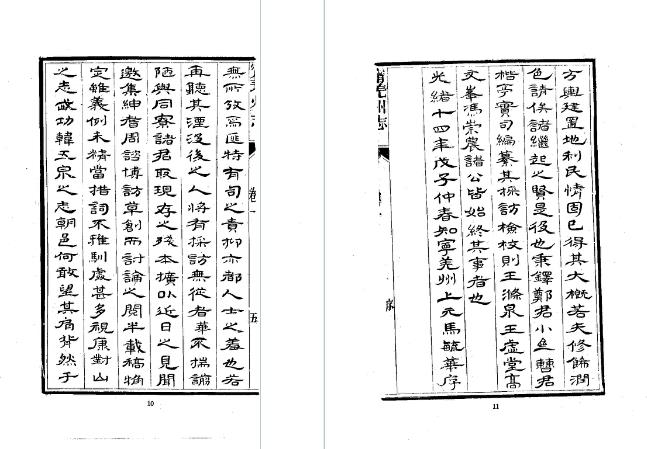 寧羌州志
卷一
五
無所攷焉匪特有司之責抑亦都人士之羞也若
再聽其湮沒後之人將有採訪無從者華不揣謭
陋與同寮諸君取現存之殘本擴以近日之見聞
邀集紳耆周諮博訪草創而討論之閱半載稿
定雖義例未精當措詞不雅馴處甚多視康對山
之志武功韓五泉之志朝邑何敢望其肩背然于
10
寧羌州志
方輿建置地利民情固已得其大概若夫修飾潤
色請俟諸繼起之賢是役也秉鐸鄭君小君
楷亭實司編纂其採訪檢校則王滌泉王虛堂高
文峯馮崇農諸公皆始終其事者也
光緒十四年戊子仲春知寧羌州上元馬毓華序
11